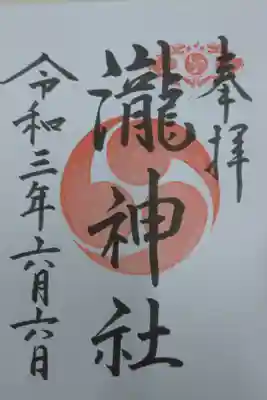 奉拝
瀧神社
令和三年六月六日